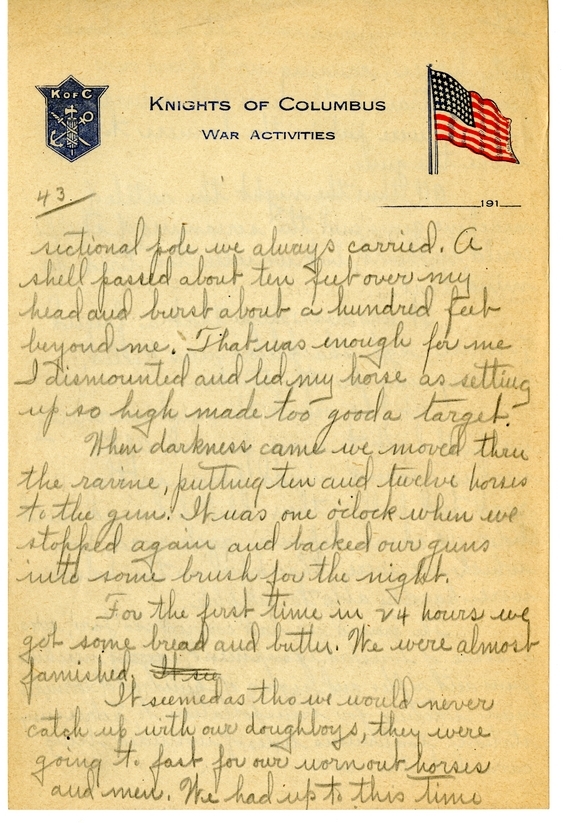 K OF C
KNIGHTS OF COLUMBUS
WAR ACTIVITIES
43.
191
sectional pole we always carried. A
shell passed about ten feet over my
head and burst about a hundred feet
beyond me. That was enough for me
I dismounted and led my horse as setting
up so high made too good a target.
When darkness came we moved thru
the ravine, putting ten and twelve horses
to the gun. It was one o'clock when we
stopped again and backed our guns
into some brush for the night.
For the first time in 24 hours we
got some bread and butter. We were almost
famished. It see
It seemed as tho we would never
catch up with our doughboys, they were
going to fast for our worn out horses
and men. We had up to this time